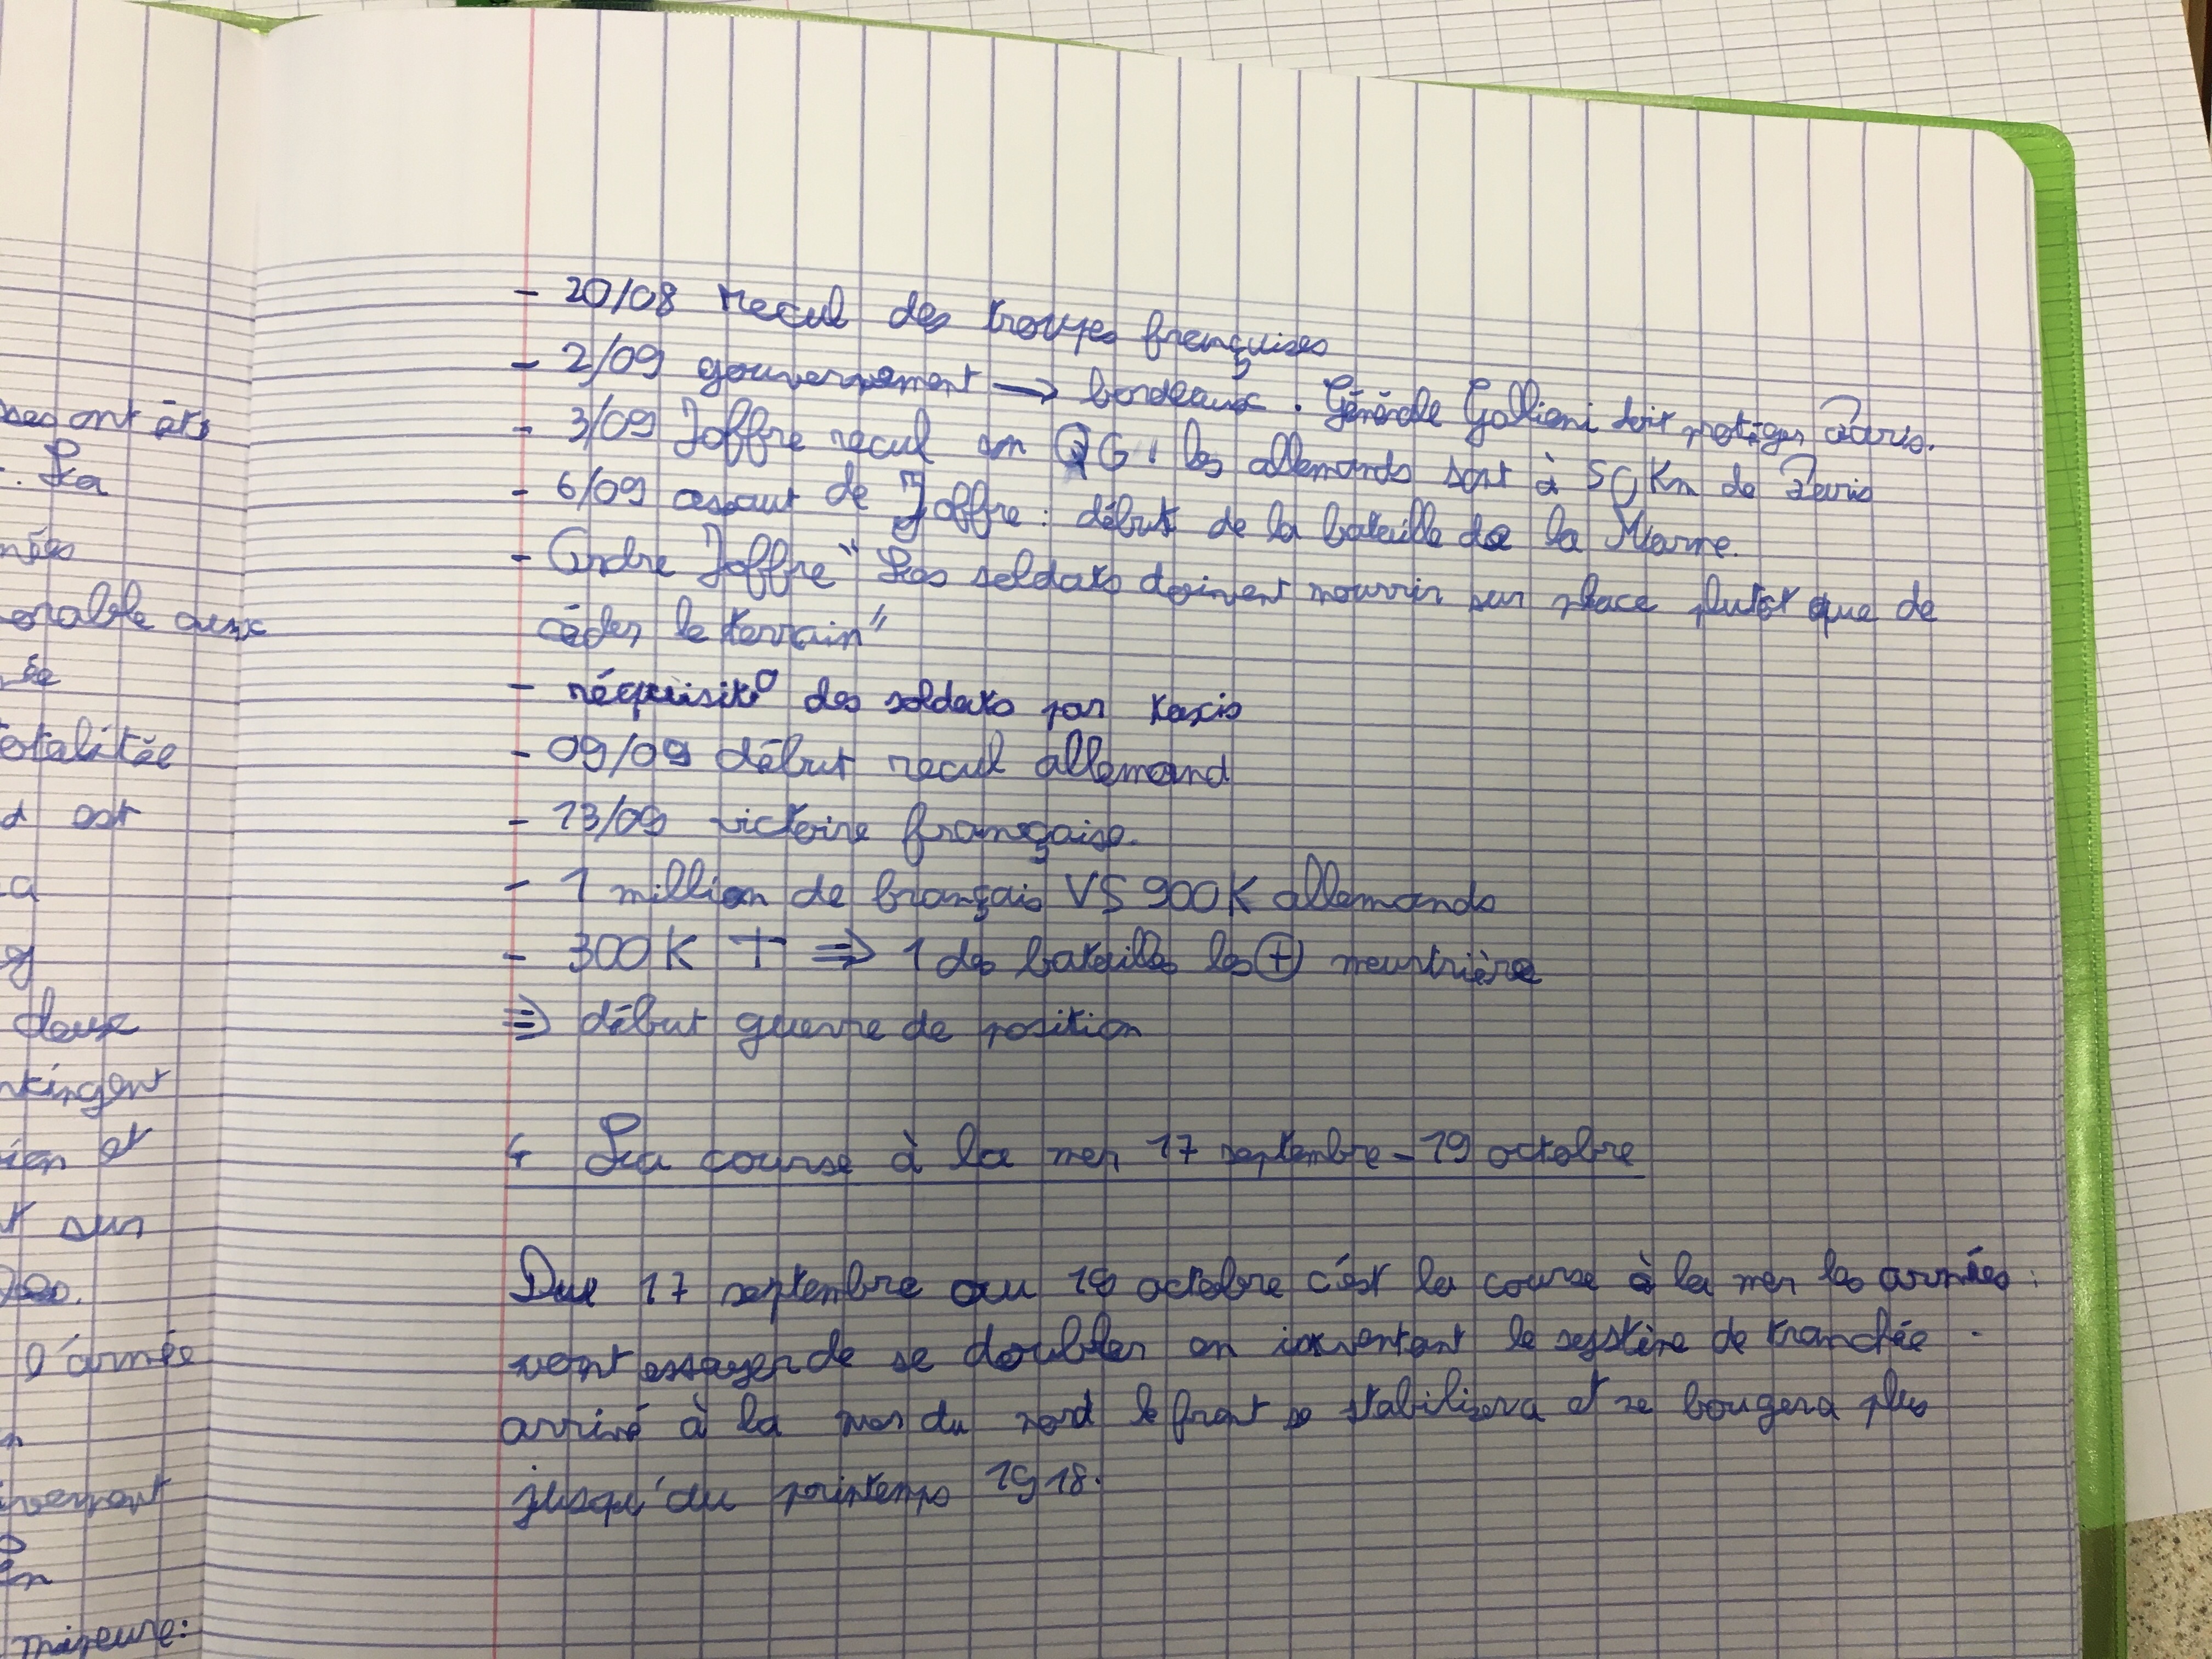 sses ont étés
. La
nées
orable aux
se
otalitée
d est
a
deux
ntingent
ien et
t sur
l'armée
mineure:
- 20/08 recul des troupes françaises
- 2/09 gouvernement → bordeaux. Générale Gallieni doit protéger Paris.
- 3/09 Joffre recul son QG. les allemands sont à 50 Km de Paris
- 6/09 assaut de Joffre : début de la bataille de la Marne.
- Ordre Joffre "Les soldats doivent mourrir sur place plutôt que de
céder le terrain"
- réquisit° des soldats par taxis
- 09/09 début recul allemand
- 13/09 victoire française.
- 1 million de français VS 900K allemands
- 300K † ⇒ 1 des batailles les ⊕ meurtrière
⇒ début guerre de position
4 La course à la mer 17 septembre - 19 octobre
Due 17 septembre au 19 octobre c'est la course à la mer les armées :
vont essayer de se doubler en inventant le système de tranchée .
arrivé à la mer du nord le front se stabilisera et ne bougera plus
jusqu'au printemps 1918.